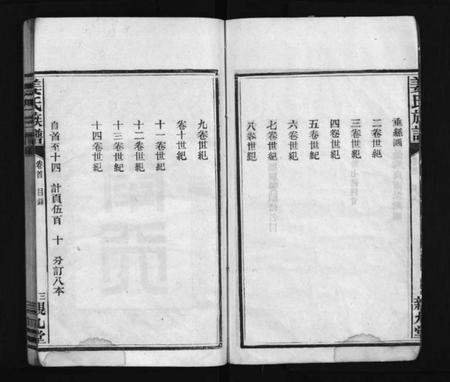 姜氏族譜
垂絲圖
二卷世紀
三卷世紀
四卷世紀
五卷世紀
六卷世紀
七卷世紀
八卷世紀
親九堂
九卷世紀
卷十世紀
十一卷世紀
十二卷世紀
十三卷世紀
十四卷世紀
自首至十四 計頁伍百 十 分訂八本
姜氏族譜
卷首 目錄
三
親九堂